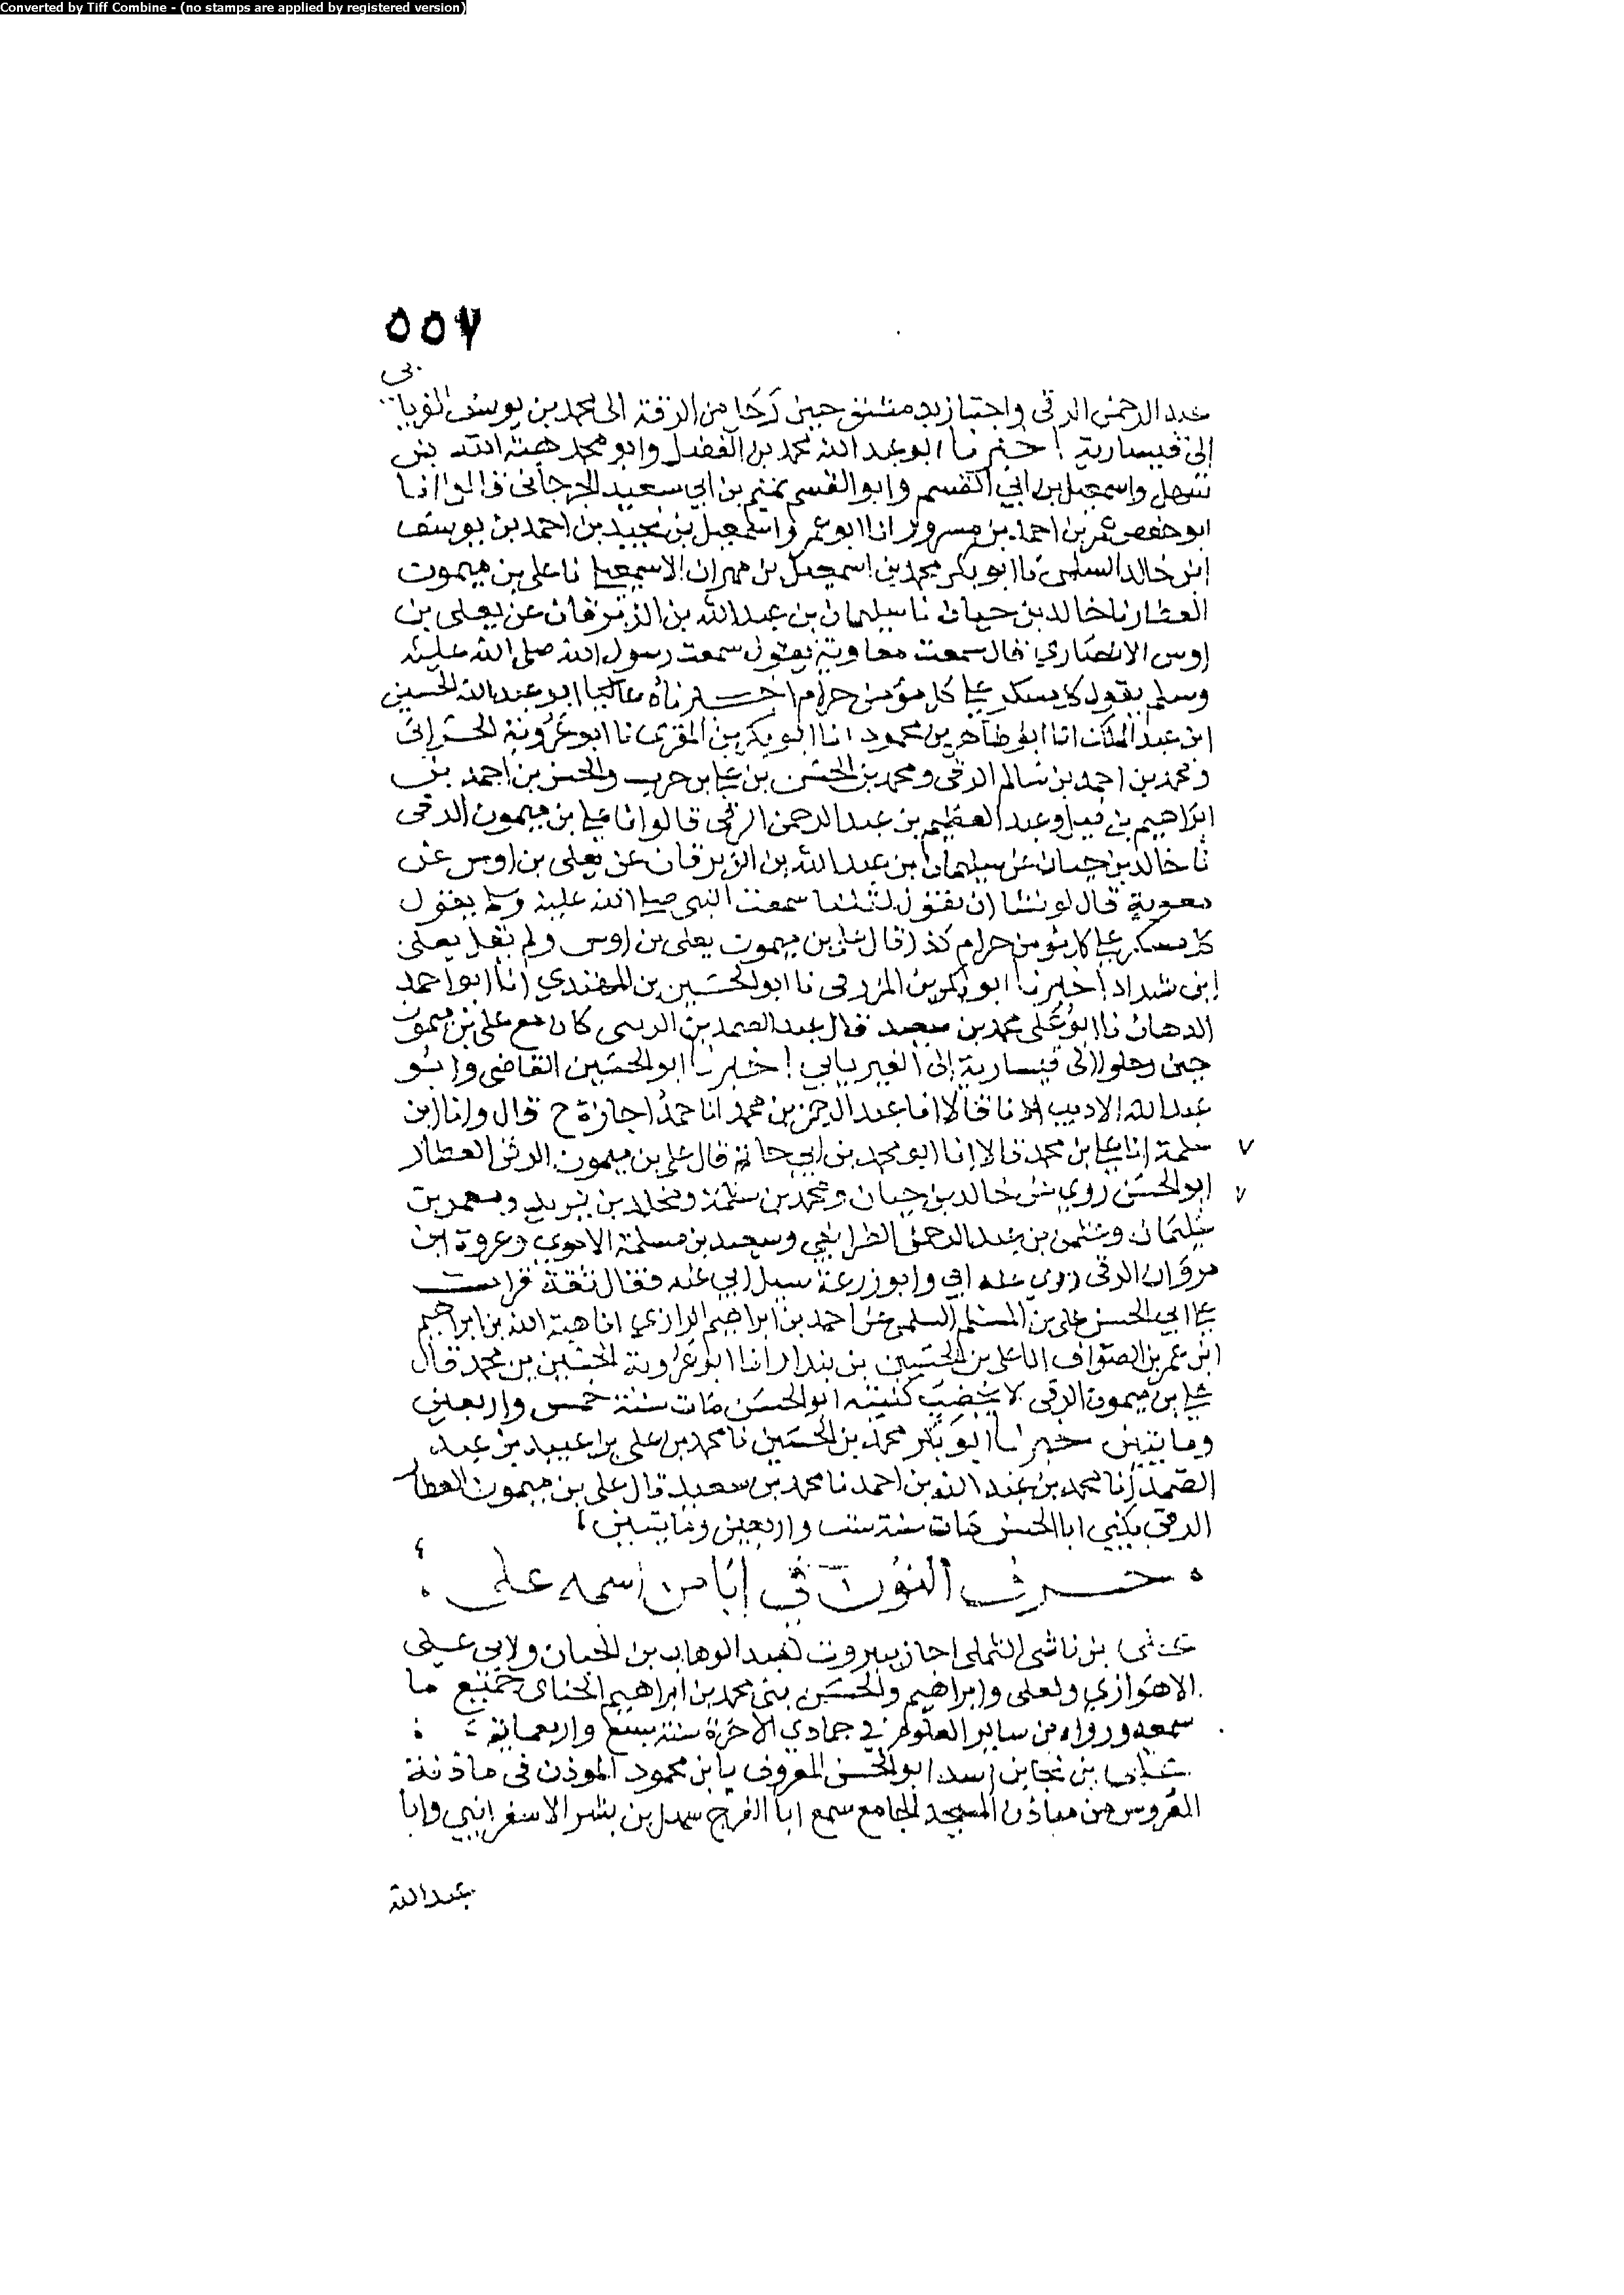 Converted by Tiff Combine - (no stamps are applied by registered version)
٥٥٧
بى
عبد الرحمن الرقى واجتاز بدمشق حين رحا من الرقة الى محمد بن يوسف الفريا
إلى قيسارية اخبرنا ابو عبد الله محمد بن الفضل وابو محمد هبة الله بن
سهل واسمعيل بن ابي القسم وابو القسم تميم بن ابي سعيد الجرجاني قالوا انا
ابو حفص عمر بن احمد بن مسرور انا ابو عمرو اسمعيل بن نجيد بن احمد بن يوسف
ابن خالد السلمى نا ابو بكر محمد بن اسمعيل بن مهران الاسمعيلي نا على بن ميمون
العطار نا خالد بن حيان نا سليمان بن عبد الله بن الزبرقان عن يعلى بن
اوس الانصاري قال سمعت معاوية يقول سمعت رسول الله صلى الله عليه
وسلم يقول كل مسكر على كل مؤمن حرام اخبرناه عاليا ابو عبد الله الحسين
ابن عبد الملك انا ابو طاهر بن محمود انا ابو بكر بن المقرى نا ابو عروبة الحراني
ومحمد بن احمد بن سالم الرقى ومحمد بن الحسن بن على بن حرب والحسن بن احمد بن
ابراهيم بن فيل وعبد العظيم بن عبد الرحمن الرقى قالوا انا على بن ميمون الرقى
نا خالد بن حيان عن سليمان بن عبد الله بن الزبرقان عن يعلى بن اوس عن
معوية قال لو نشا ان نقول لقلنا سمعت النبي صلى الله عليه وسلم يقول
كل مسكر على كل مؤمن حرام كذا قال على بن ميمون يعلى بن اوس ولم يقل يعلى
ابن شداد اخبرنا ابو بكر بن المزرفى نا ابو الحسين بن المهتدي انا ابو احمد
الدهان نا ابو على محمد بن سعيد قال عبد الصمد بن كان مع على بن ميمون
حين رحلوا الى قيسارية إلى الفيريابي اخبرنا ابو الحسين القاضى وابو
عبد الله الاديب قالا انا عبد الرحمن بن محمد انا حمد اجازة ح قال وانا ابن
سلمة انا على بن محمد قالا انا ابو محمد بن ابي حاتم قال على بن ميمون الرقى العطار
ابو الحسن روى عن خالد بن حيان ومحمد بن سلمة ومخلد بن يزيد ومعمر بن
سليمان وعثمن بن عبد الرحمن الطرايفي وسعيد بن مسلمة الاموي وعروة ابن
مروان الرقى روى عنه ابي وابو زرعة سيل ابي عنه فقال ثقة قرات
على ابي الحسن على بن المسلم السلمى عن احمد بن ابراهيم الرازي انا هبة الله بن ابراهيم
ابن عمر بن الصواف انا على بن الحسين بن بندار انا ابو عروبة الحسين بن محمد قال
على بن ميمون الرقى لا يخضب كنيته ابو الحسن مات سنة خمس واربعين
ومايتين اخبرنا ابو بكر محمد بن الحسين نا محمد بن على بن عبيد بن عبد
الصمد انا محمد بن عبد الله بن احمد نا محمد بن سعيد قال على بن ميمون العطار
الرقى يكنى ابا الحسن مات سنة ست واربعين ومايتين
حرف النون في ابا من اسمه على
على بن ناشى اجاز ببيروت لعبد الوهاب بن الجبان ولابي على
الاهوازي ولعلى وابراهيم والحسين بنى محمد بن ابراهيم الحناى جميع ما
سمعه ورواه من ساير العلوم في جمادي الاخرة سنة سبع واربعماية
على بن نجا بن اسد ابو الحسن المعروف بابن محمود الموذن فى ماذنة
العروس من مياذن المسجد الجامع سمع ابا الفرج سهل بن بشر الاسفراييني وابا
عبد الله